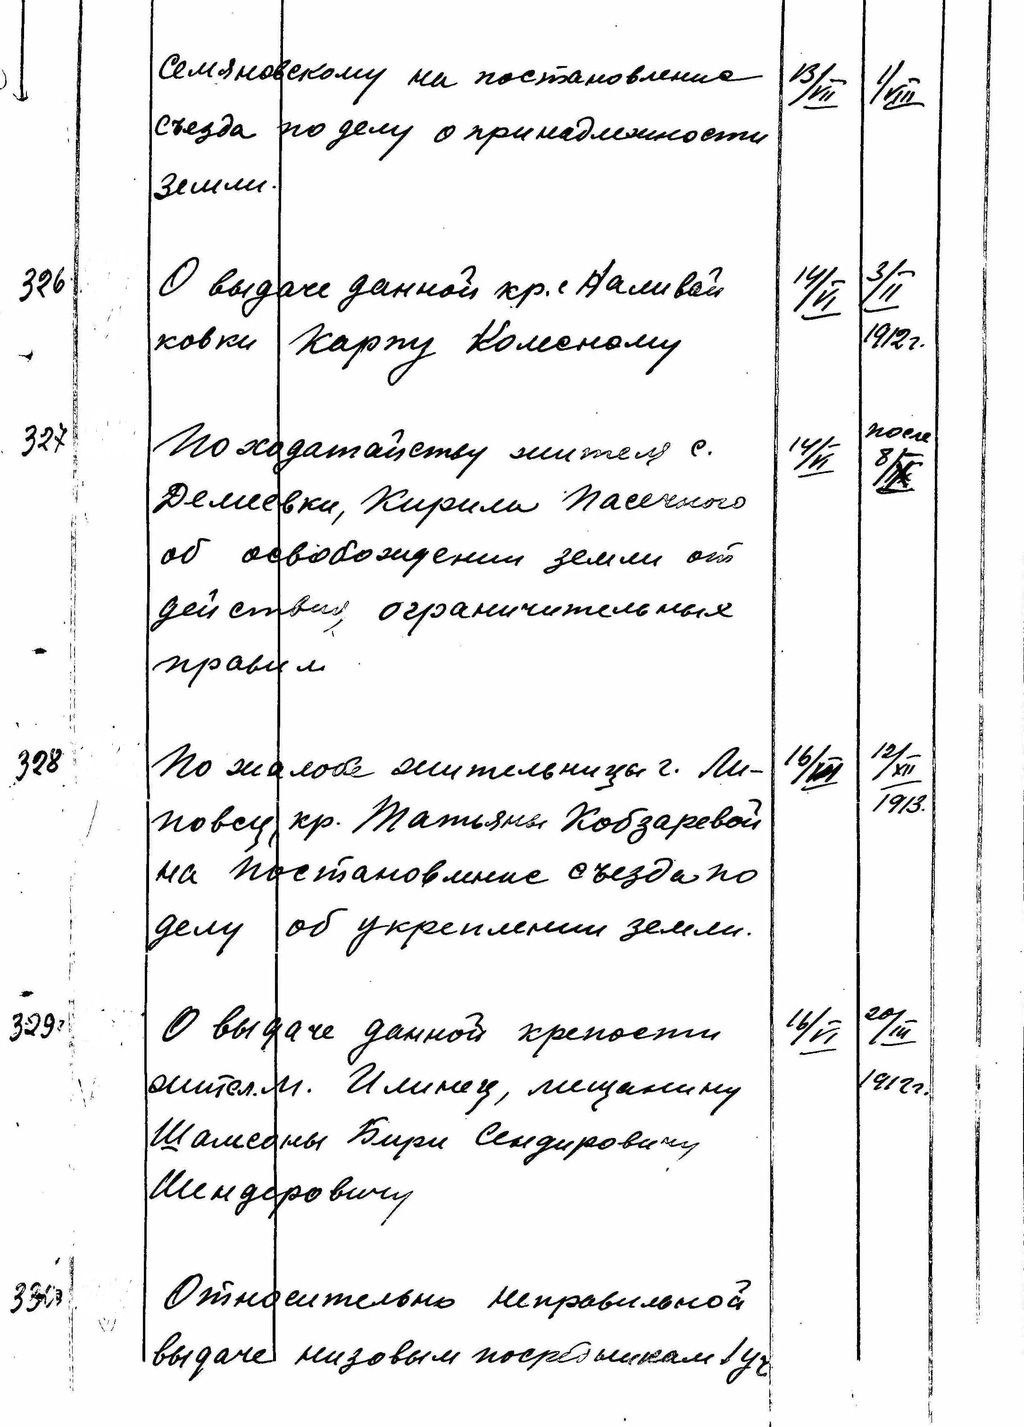 Семяновскому на постановление 13/VII 1/VIII
съезда по делу о принадлежности
земли.
326 О выдаче данной кр. с Наливай 14/VI 3/II
ковки Карпу Колесному 1912 г.
327 По ходатайству жителя с. 14/VI после
Демиевки, Кирила Пасечного 8/IX
об освобождении земли от
действия ограничительных
правил
328 По жалобе жительницы г. Ли- 16/VII 12/XII
повец, кр. Татьяны Кобзаревой 1913.
на постановление съезда по
делу об укреплении земли.
329 О выдаче данной крепости 16/VI 20/III
жител. м. Илинец, мещанину 1912 г.
Шамсоны Бири Сендировичу
Шендеровичу
330 Относительно неправильной
выдаче низовым посредникам 1 уч